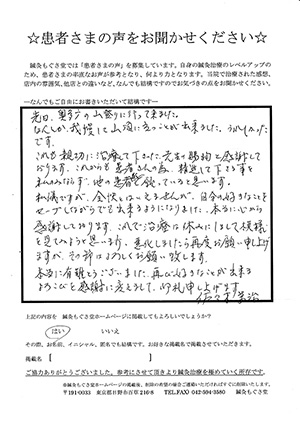 ☆患者さまの声をお聞かせください☆
鍼灸もぐさ堂では「患者さまの声」を募集しています。自身の鍼灸治療のレベルアップの
ため、患者さまの率直なお声が参考となり、何より力となります。当院で治療された感想、
店内の雰囲気、他店との違いなど、なんでも結構ですのでお気づきの点をお聞かせください。
―なんでもご自由にお書きいただいて結構です―
先日、奥多方の山登りに行って来ました。
なんとか、我慢して山頂に立つことが出来ました。うれしかった
です。
これも親切に治療して下さった先生の賜物と感謝して
おります。これからも患者さんの為、精進して下さる事を
私のみならず、他の患者も願っていると思います。
私儀ですが、全快とはいえませんが、自分の好きなことを
セーブしながらでも出来るようになりました。本当に心から
感謝しております。これで治療は休みにして模様
を見ようと思います。悪化しましたら再度お願い申し上げ
ますが、その折はよろしくお願い致します。
本当に有難とうございました。再び好きなことが出来る
よろこびを感謝に変えまして、御礼申し上げます。
上記の内容を 鍼灸もぐさ堂ホームページに掲載してもよろしいでしょうか?
はい いいえ
その際、お名前、イニシャル、匿名でも結構です。お好きな掲載名で掲載させていただきます。
掲載名【 】
ご協力ありがとうございました。参考にさせて頂きより鍼灸治療を極めていく所存です。
※鍼灸もぐさ堂のホームページの掲載後、削除の希望の場合ご連絡いただければすぐに削除いたします。
〒191-0033 東京都日野市百草216-8 TEL.FAX) 042-594-3580 鍼灸もぐさ堂